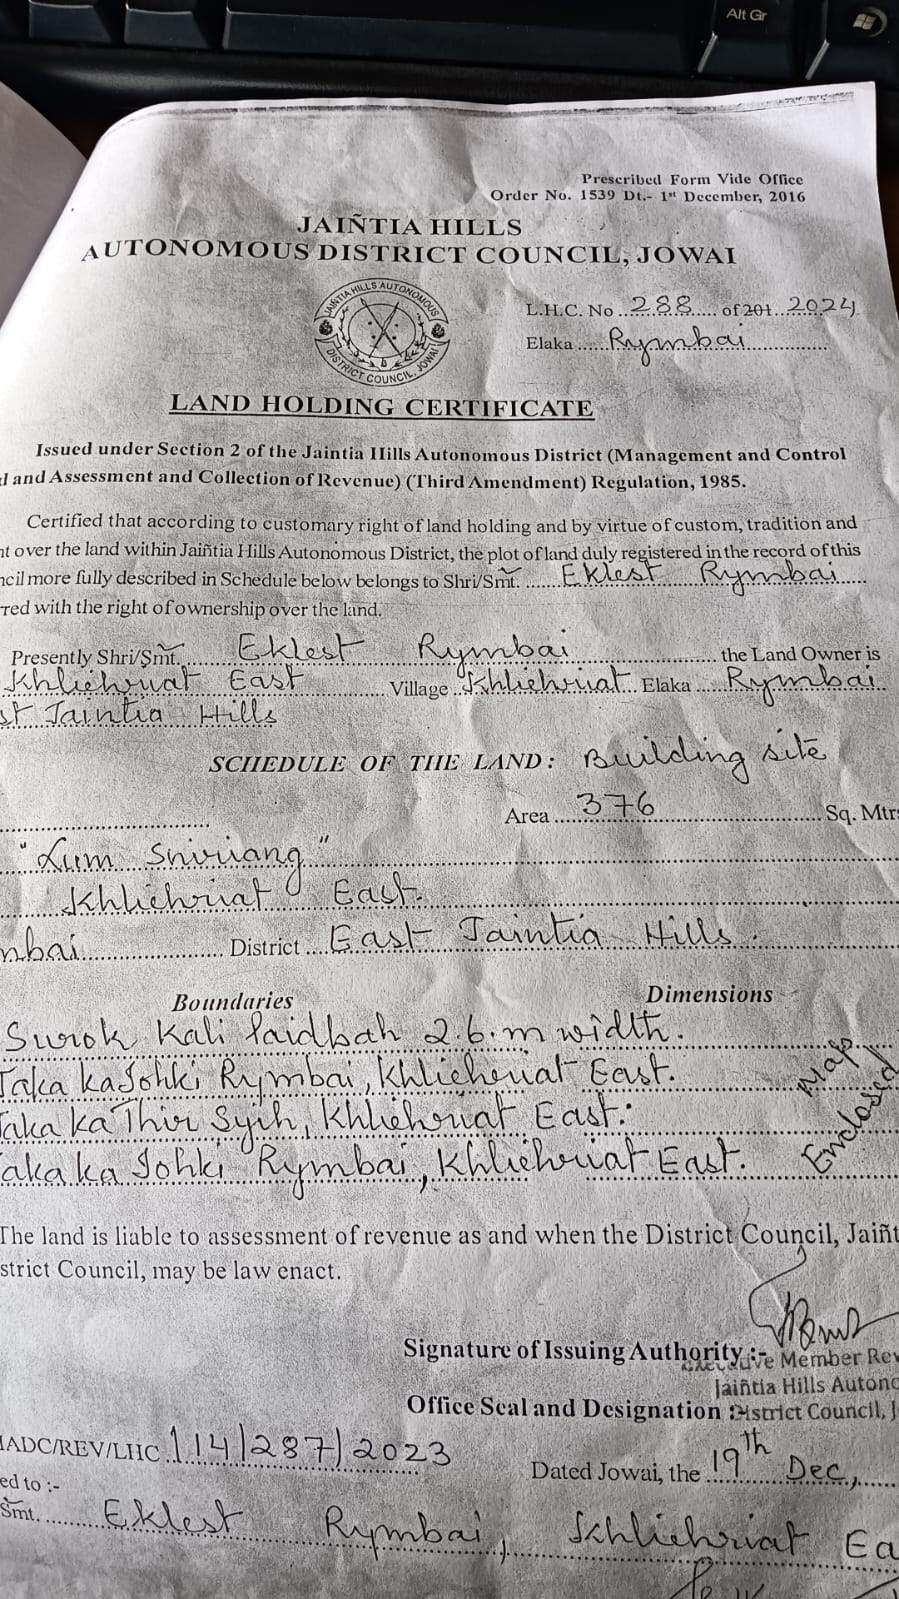 Alt Gr
Prescribed Form Vide Office
Order No. 1539 Dt.- 1st December, 2016
JAIÑTIA HILLS
AUTONOMOUS DISTRICT COUNCIL, JOWAI
JAIÑTIA HILLS AUTONOMOUS
DISTRICT COUNCIL, JOWAI
L.H.C. No 288 of 201 2024
Elaka Rymbai
LAND HOLDING CERTIFICATE
Issued under Section 2 of the Jaintia Hills Autonomous District (Management and Control
d and Assessment and Collection of Revenue) (Third Amendment) Regulation, 1985.
Certified that according to customary right of land holding and by virtue of custom, tradition and
nt over the land within Jaiñtia Hills Autonomous District, the plot of land duly registered in the record of this
ncil more fully described in Schedule below belongs to Shri/Smt. Eklest Rymbai
red with the right of ownership over the land.
Presently Shri/Smt. Eklest Rymbai the Land Owner is
Khliehriat East Village Khliehriat Elaka Rymbai
st Jaintia Hills
SCHEDULE OF THE LAND: Building site
Area 376 Sq. Mtrs
"Lum Sniriang"
Khliehriat East.
mbai District East Jaintia Hills.
Boundaries Dimensions
Surok Kali laidbah 2.6.m width.
Taka ka Johki Rymbai, Khliehriat East.
aka ka Thir Syih, Khliehriat East:
aka ka Johki Rymbai, Khliehriat East.
Maps
Enclosed
The land is liable to assessment of revenue as and when the District Council, Jaiñt
strict Council, may be law enact.
Signature of Issuing Authority :-
Executive Member Rev
Jaiñtia Hills Autono
Office Seal and Designation :-
District Council, J
HADC/REV/LHC 114/287/2023
Dated Jowai, the 19th Dec,
ed to :-
Smt. Eklest Rymbai, Khliehriat Ea